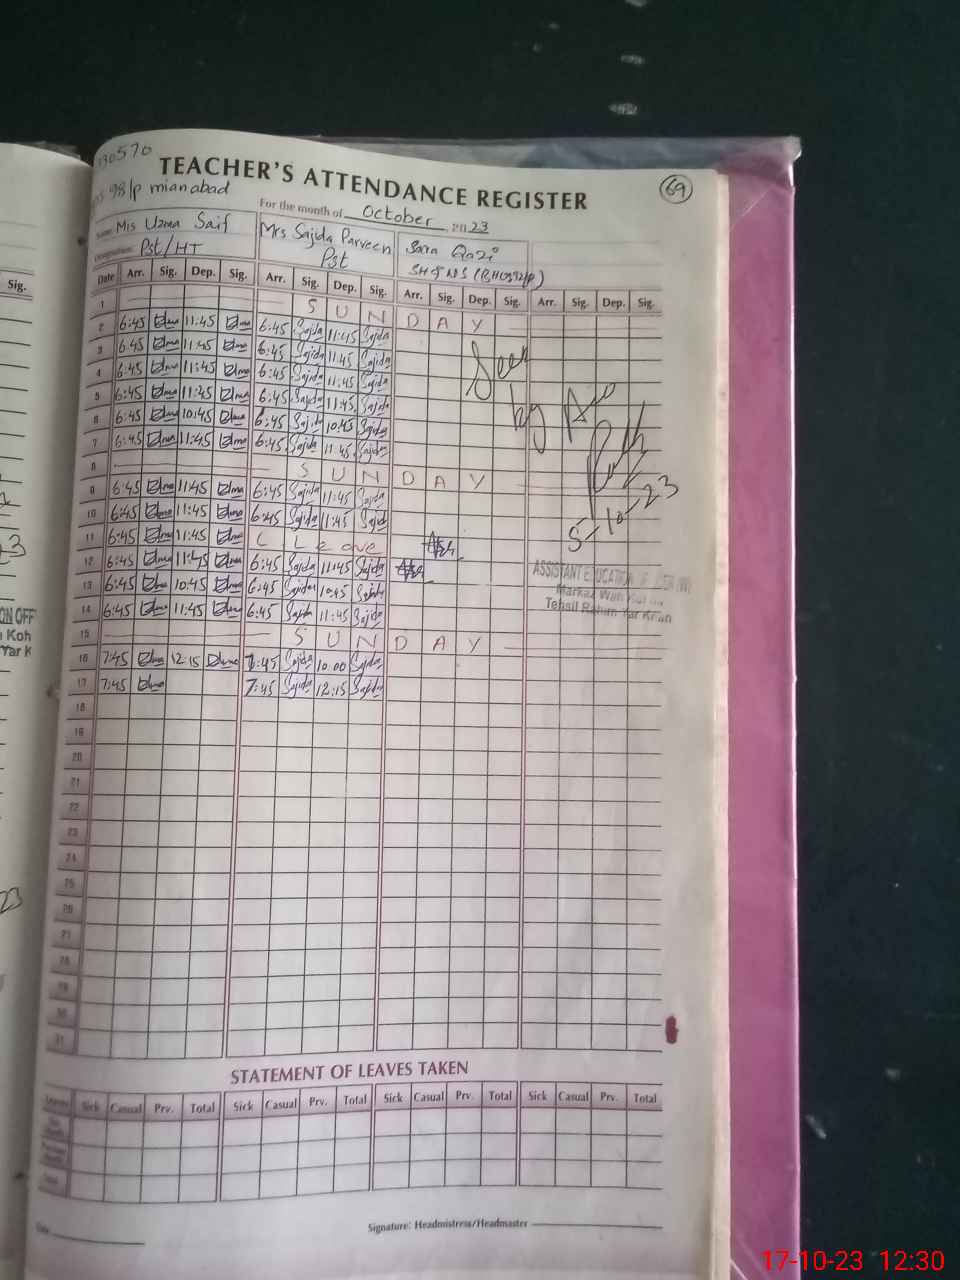 30570
TEACHER'S ATTENDANCE REGISTER
69
98/p mianabad
For the month of October 2023
Name: Mis Uzma Saif Mrs Sajida Parveen Sara Qazi
Designation: Pst/HT Pst
Date Arr. Sig. Dep. Sig. Arr. Sig. Dep. Sig. Arr. Sig. Dep. Sig. Arr. Sig. Dep. Sig.
1 S U N D A Y
2 6:45 11:45 6:45 Sajida 11:45 Sajida
3 6:45 11:45 6:45 Sajida 11:45 Sajida
4 6:45 11:45 6:45 Sajida 11:45 Sajida
5 6:45 11:45 6:45 Sajida 11:45 Sajida
6 6:45 10:45 6:45 Sajida 10:45 Sajida
7 6:45 11:45 6:45 Sajida 11:45 Sajida
8 S U N D A Y
9 6:45 11:45 6:45 Sajida 11:45 Sajida
10 6:45 11:45 6:45 Sajida 11:45 Sajida
11 6:45 11:45 C Leave
12 6:45 11:45 6:45 Sajida 11:45 Sajida
13 6:45 10:45 6:45 Sajida 10:45 Sajida
14 6:45 11:45 6:45 Sajida 11:45 Sajida
15 S U N D A Y
16 7:45 12:15 7:45 Sajida 10:00 Sajida
17 7:45 7:45 Sajida 12:15 Sajida
18
19
20
21
22
23
24
25
26
27
28
29
30
31
Seen
by AEO
5-10-23
ASSISTANT EDUCATION OFFICER (W)
Markaz
Tehsil Rahim Yar Khan
STATEMENT OF LEAVES TAKEN
Leaves Sick Casual Prv. Total Sick Casual Prv. Total Sick Casual Prv. Total Sick Casual Prv. Total
Date
Signature: Headmistress/Headmaster
Sig.
ON OFF
Koh
Yar K
23
17-10-23 12:30